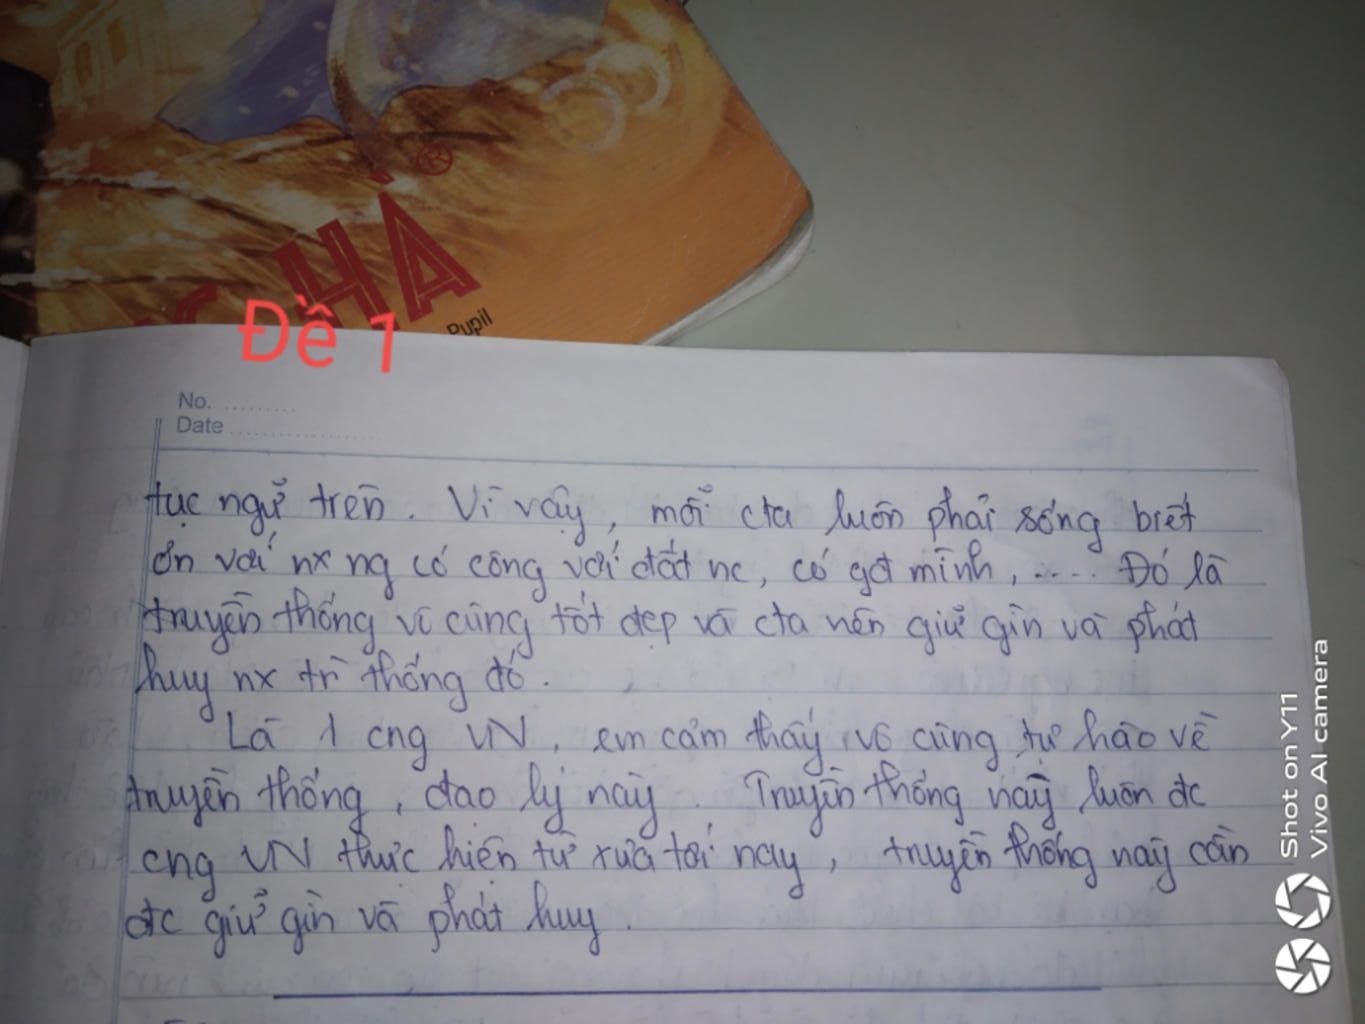 HÀ
®
Pupil
Đề 1
No. ..........
Date ....................
tục ngữ trên. Vì vậy, mỗi cta luôn phải sống biết
ơn với nx ng có công với đất nc, có gđ mình, .... Đó là
truyền thống vô cùng tốt đẹp và cta nên giữ gìn và phát
huy nx tr thống đó.
Là 1 cng VN, em cảm thấy vô cùng tự hào về
truyền thống, đạo lý này. Truyền thống này luôn đc
cng VN thực hiện từ xưa tới nay, truyền thống này cần
đc giữ gìn và phát huy.
Shot on Y11
Vivo AI camera